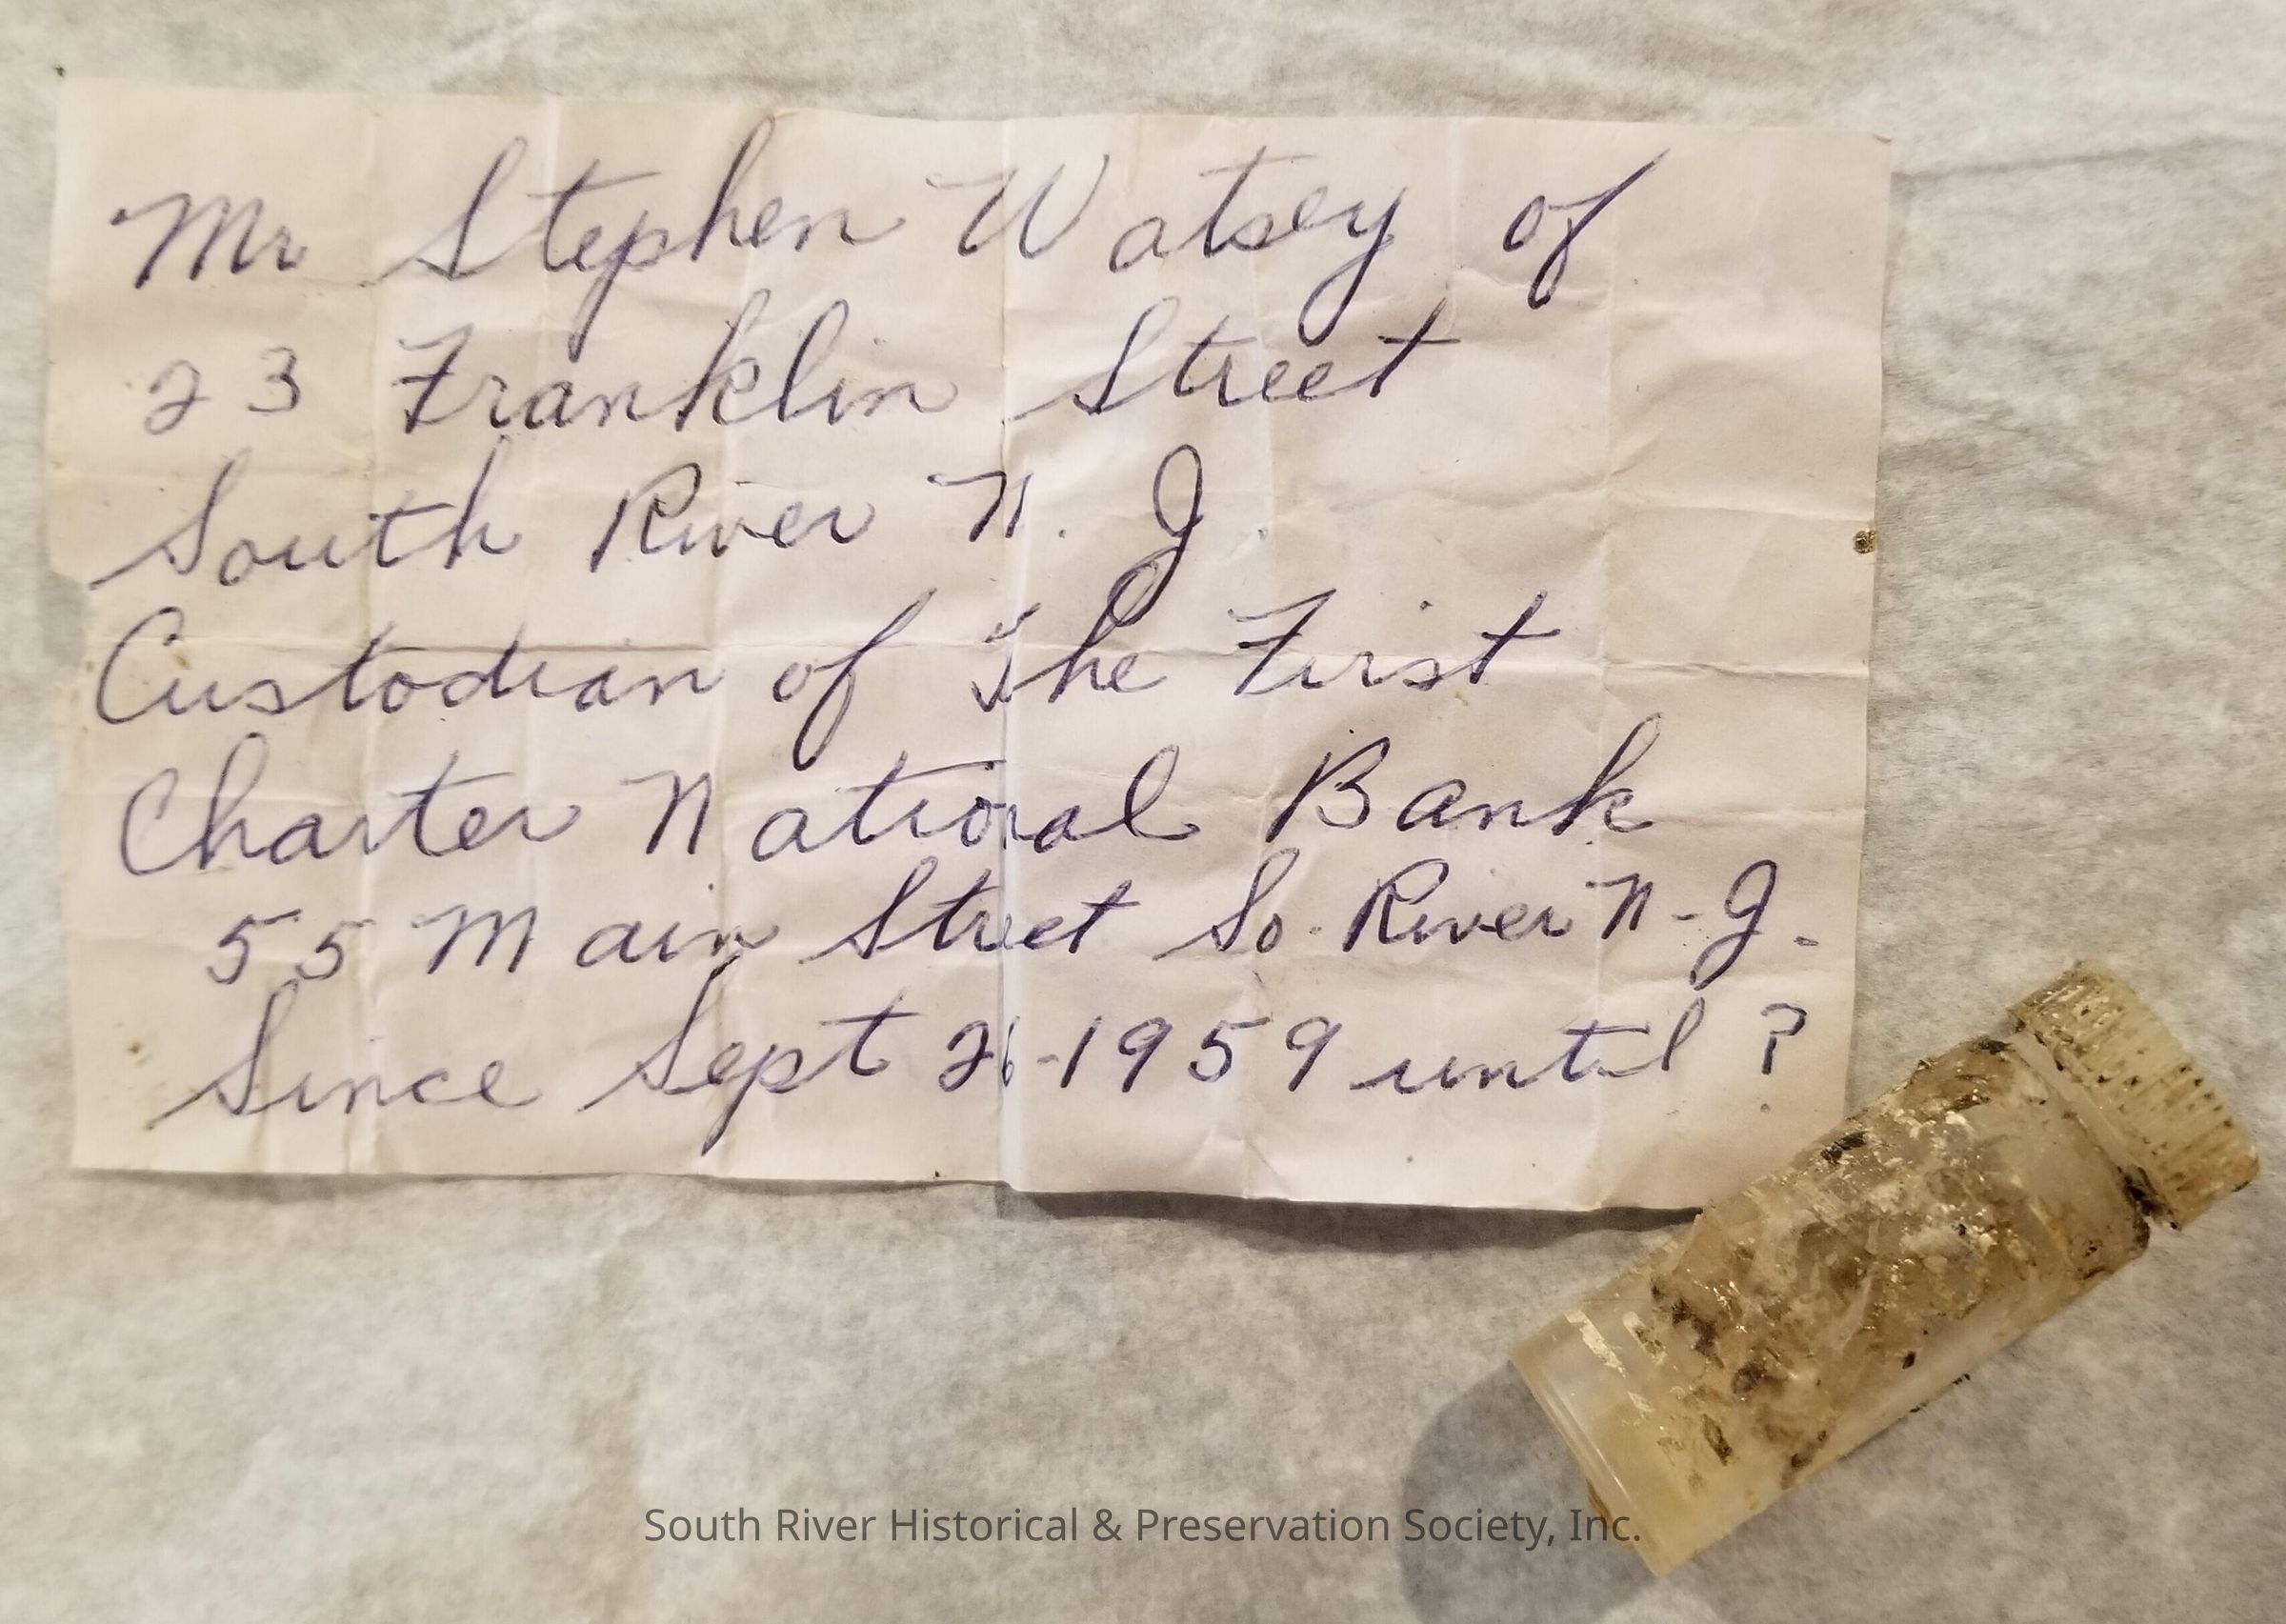 Mr Stephen Watsey of
23 Franklin Street
South River N. J.
Custodian of The First
Charter National Bank
55 Main Street So. River N-J.
Since Sept 26-1959 until ?
South River Historical & Preservation Society, Inc.